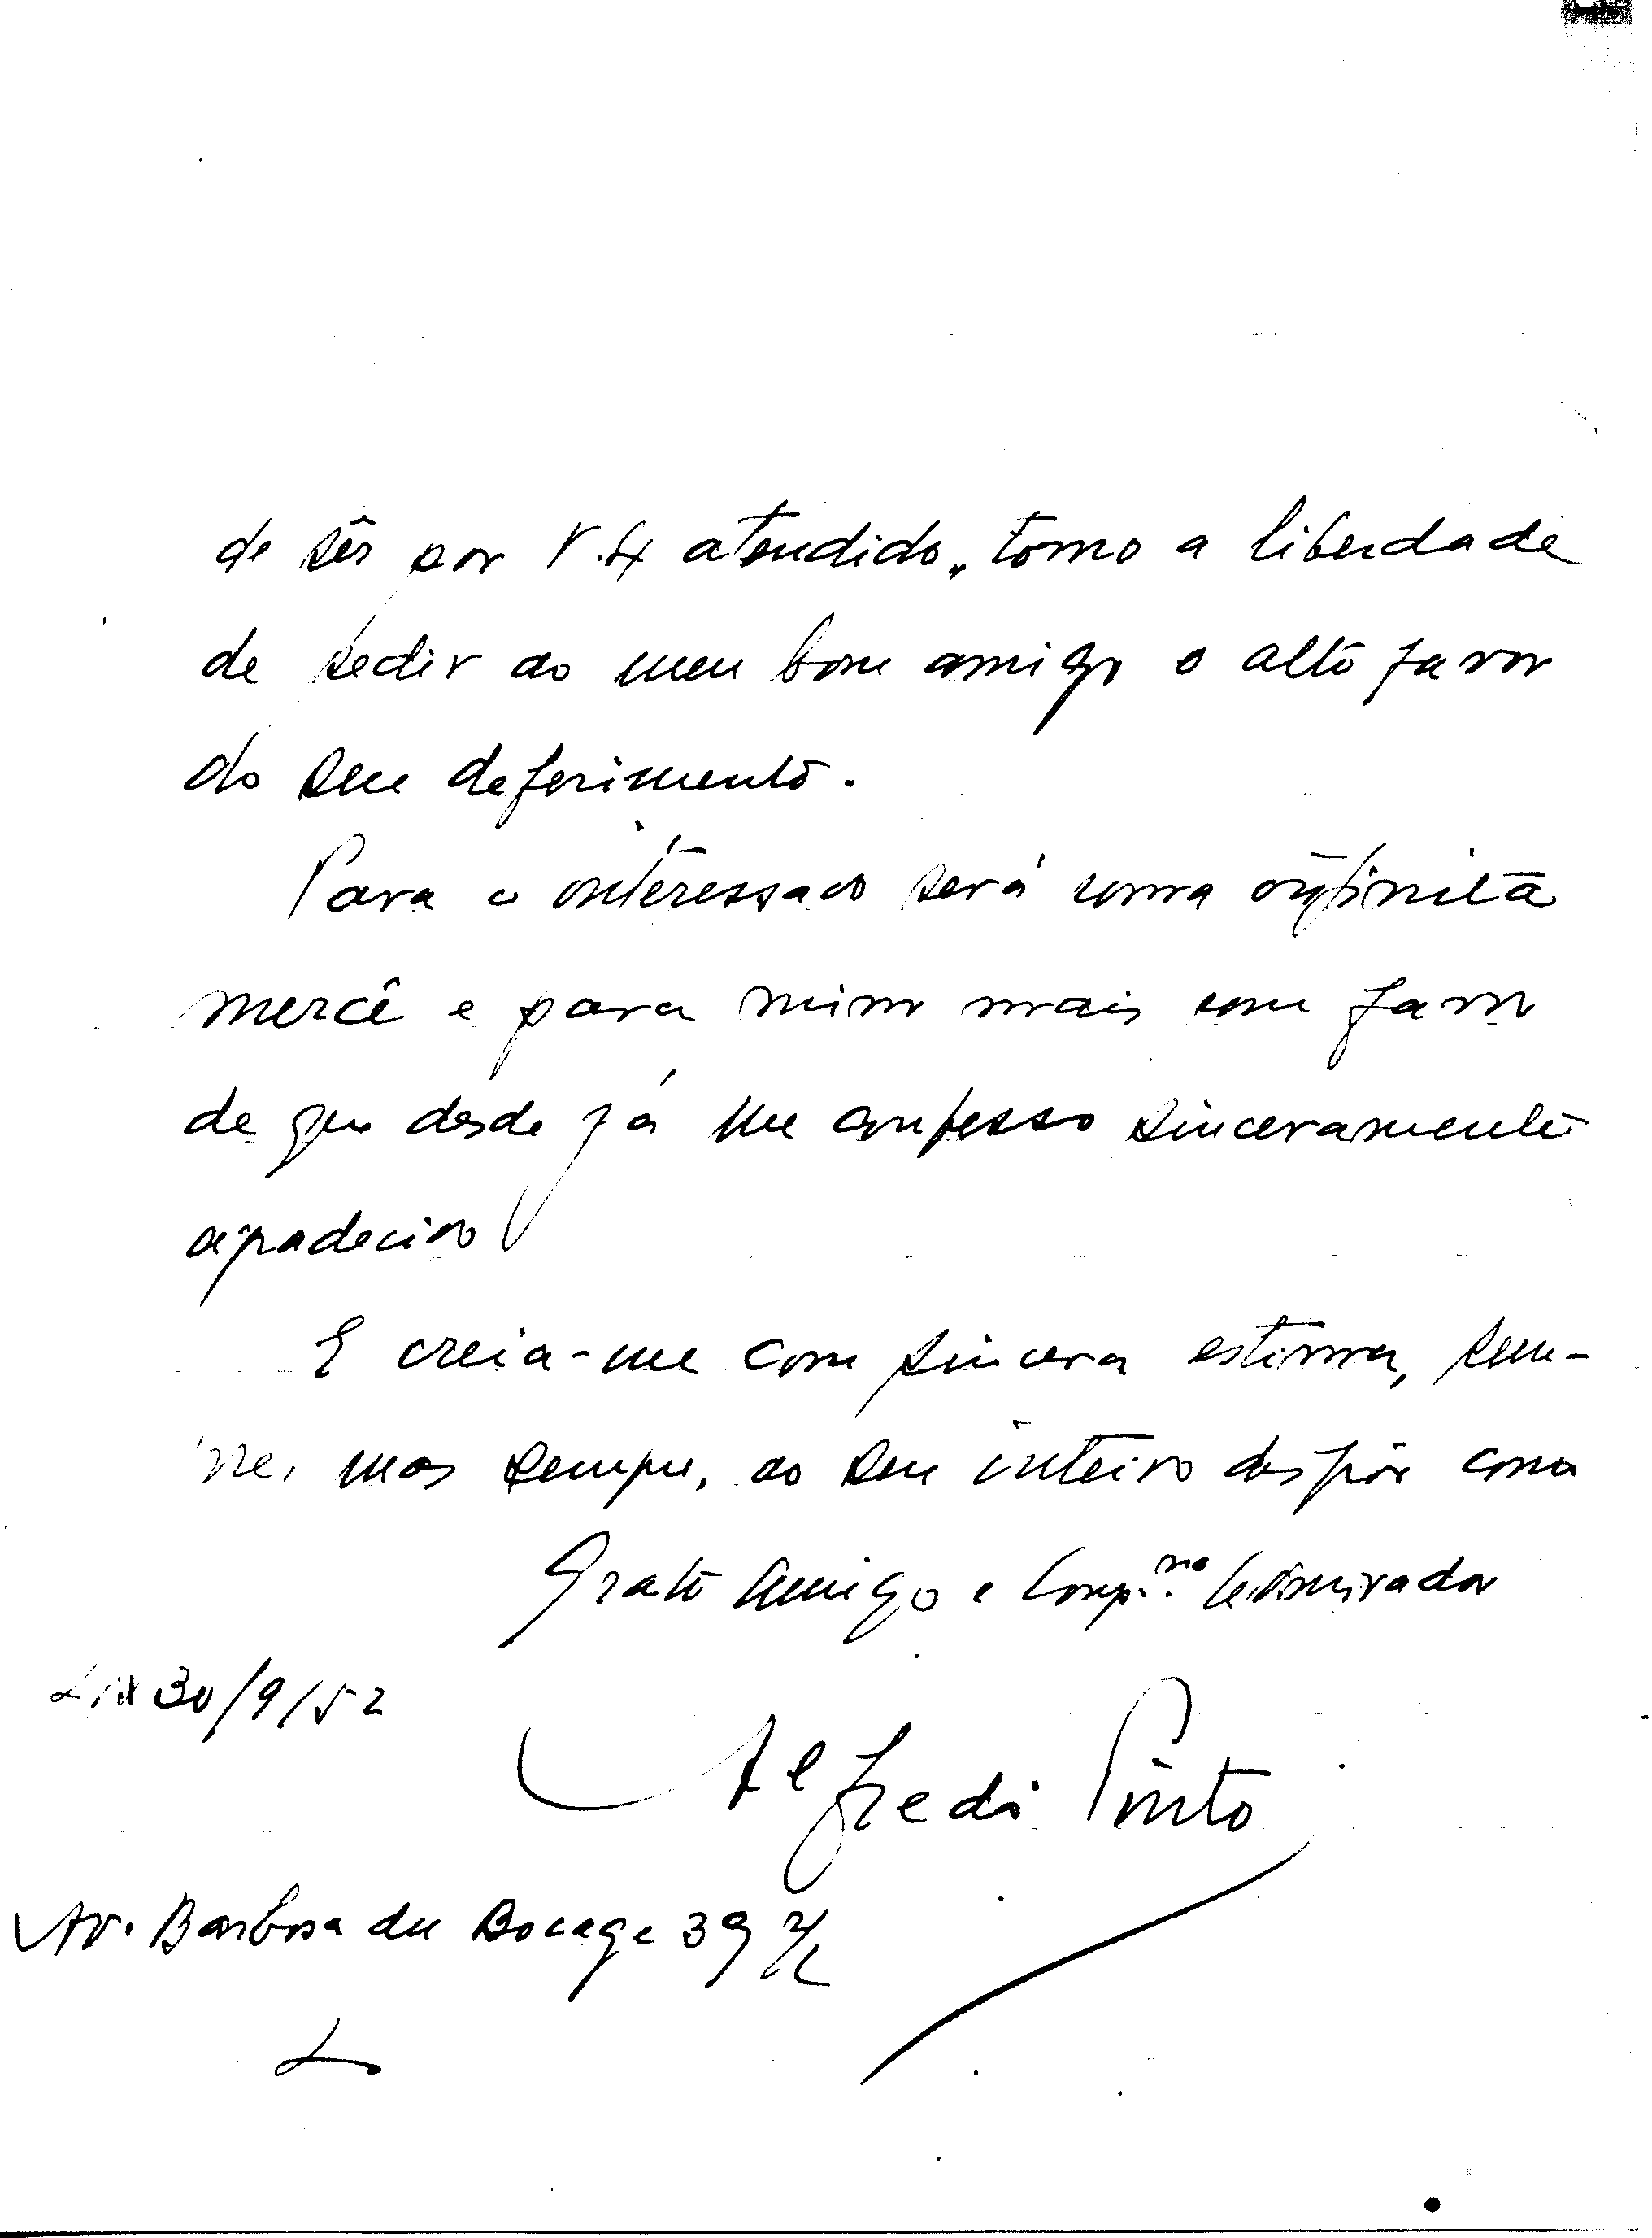 de sêr por V. Ex atendido, tomo a liberdade
de pedir ao meu bom amigo o alto favor
do seu deferimento.
Para o interessado será uma infinita
mercê e para mim mais um favor
de que desde já me confesso sinceramente
agradecido
E creia-me com sincera estima, sem-
pre, mas sempre, ao seu inteiro dispôr como
Grato Amigo e admirador
Lix 30/9/52
Alfredo Pinto
Av. Barbosa du Bocage 39
L